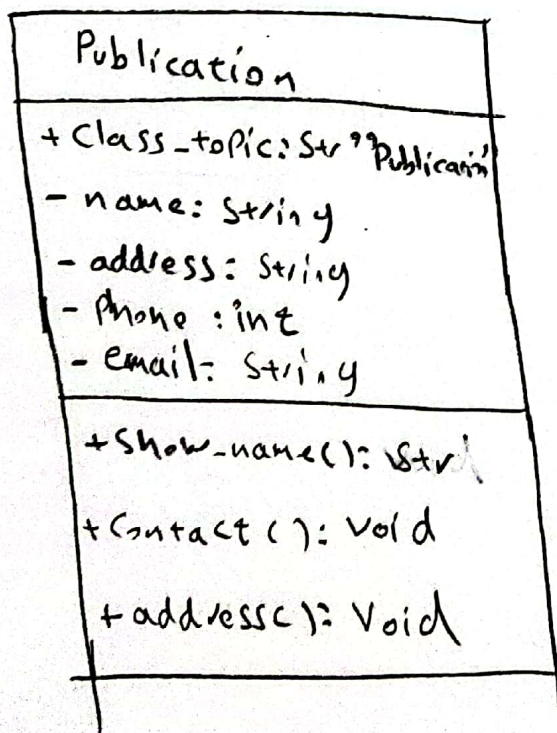 Publication
+ Class_topic: Str "Publication"
- name: String
- address: String
- Phone : int
- email: String
+ Show_name(): Str
+ Contact(): Void
+ address(): Void